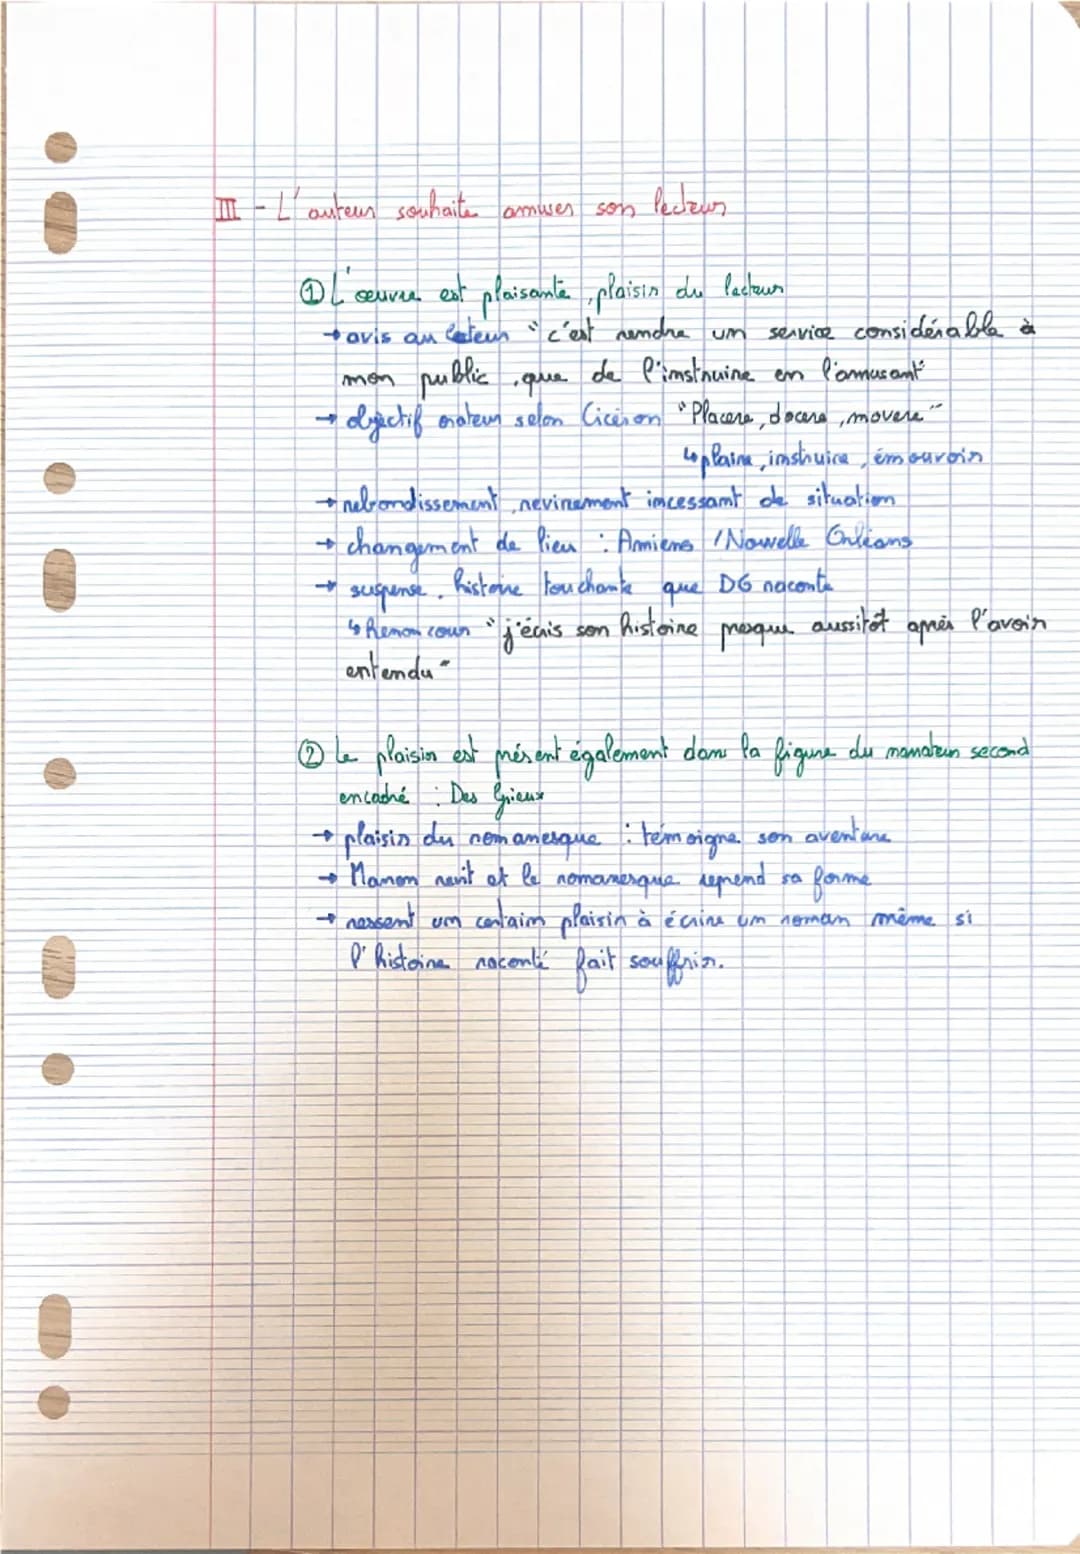 III - L'auteur souhaite amuser son lecteur
① L'œuvre est plaisante, plaisir du lecteur
→ avis au lecteur "c'est rendre un service considérable à
mon public, que de l'instruire en l'amusant"
→ objectif orateur selon Cicéron "Placere, docere, movere"
↳ plaire, instruire, émouvoir
→ rebondissement, revirement incessant de situation
→ changement de lieu : Amiens / Nouvelle Orléans
→ suspense, histoire touchante que DG raconte
↳ Renoncour "j'écris son histoire presque aussitôt après l'avoir
entendu"
② Le plaisir est présent également dans la figure du narrateur second
encadré : Des Grieux
→ plaisir du romanesque : témoigne son aventure
→ Manon revit et le romanesque reprend sa forme
→ ressent un certain plaisir à écrire un roman même si
l'histoire raconté fait souffrir.